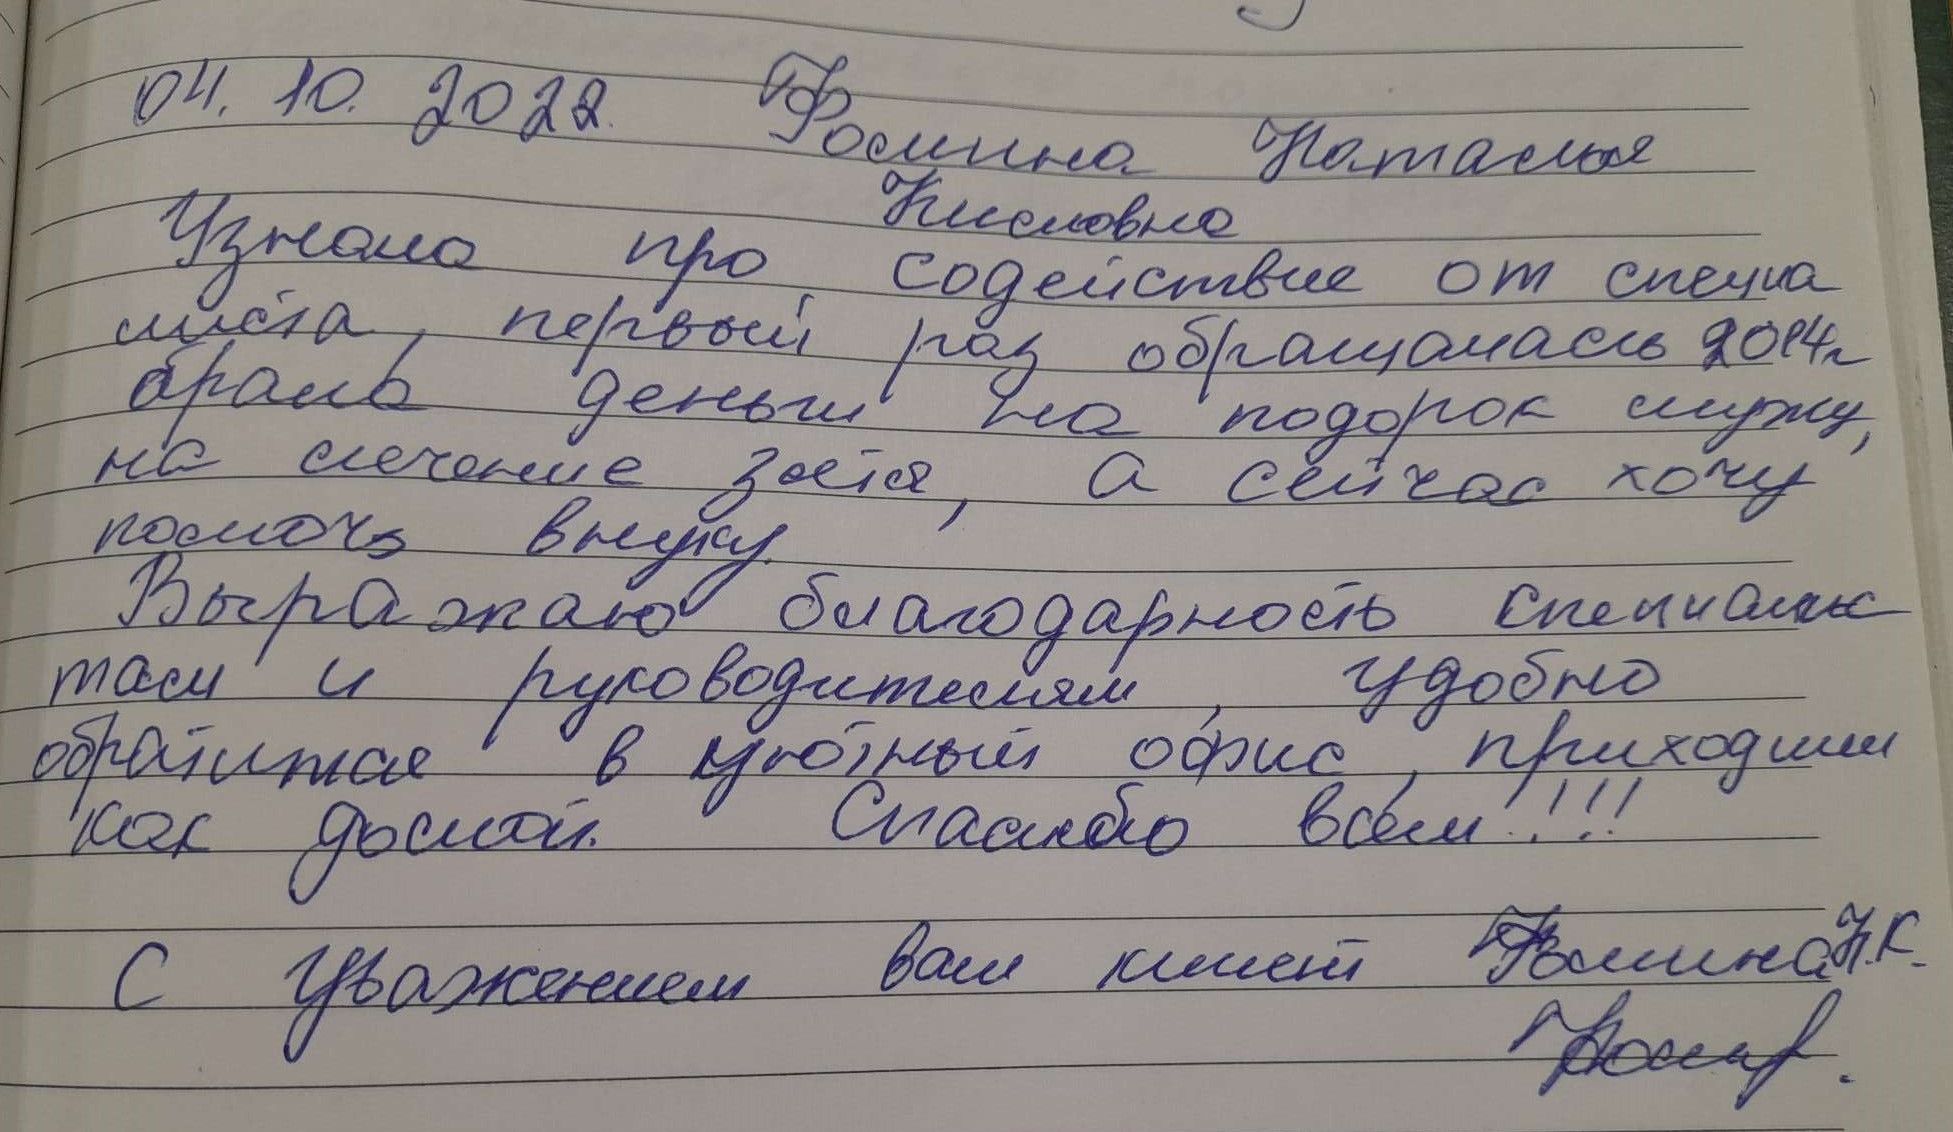 04.10.2022 Фомина Наталья
Кисловна
Узнала про содействие от специа
листа, первый раз обращалась 2014г
брала деньги на подорок мужу,
на лечение зятя, а сейчас хочу
помочь внуку.
Выражаю благодарность специалис
там и руководителям, удобно
обратится в уютный офис, приходим
как домой. Спасибо всем!!!
С Уважением ваш клиент Фомина Н.К.